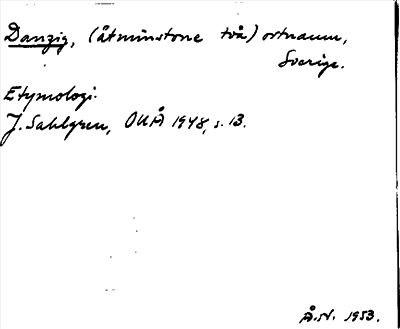 Danzig, (åtminstone två) ortnamn,
Sverige.
Etymologi:
J. Sahlgren, OUÅ 1948, s. 13.
Å.N. 1953.